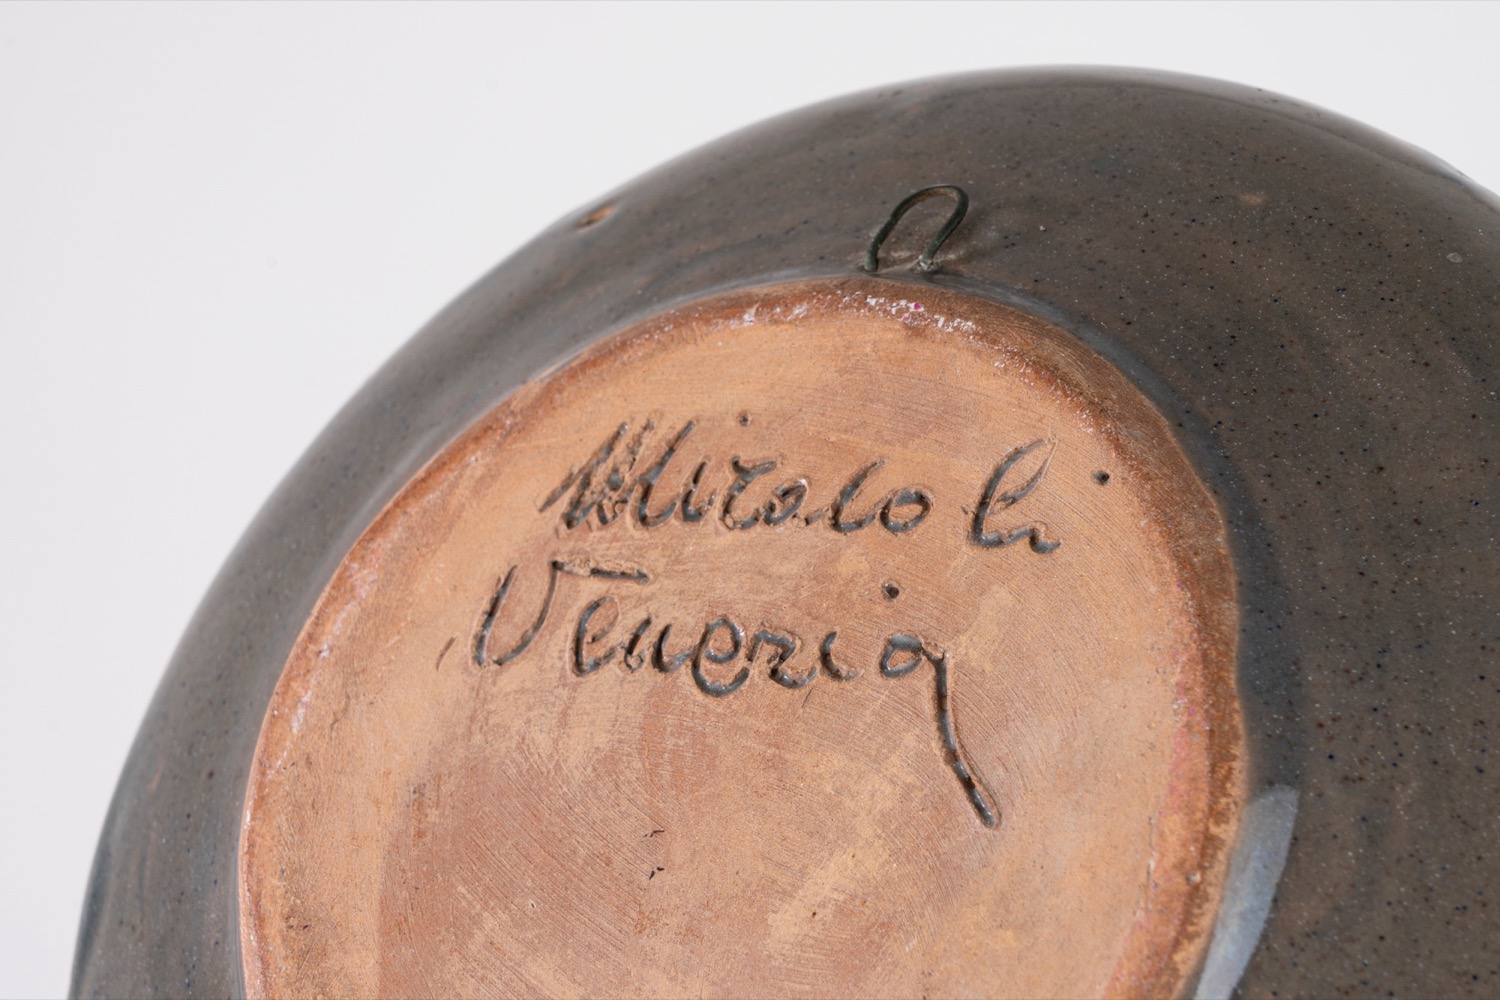 Miralo li
Venezia